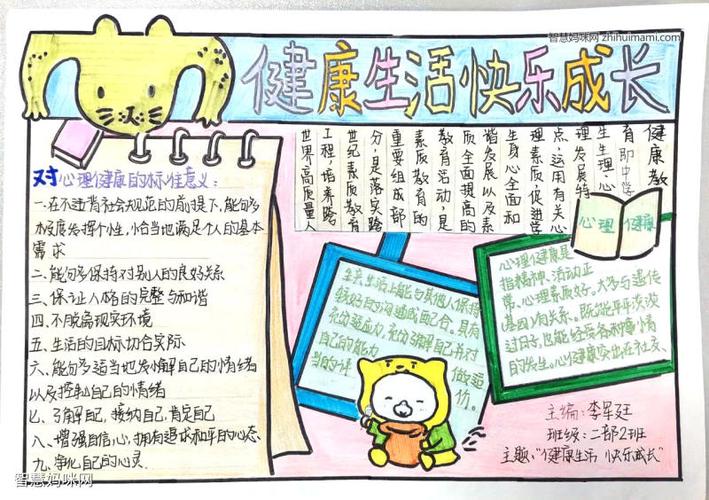 智慧妈咪网 zhihuimami.com
健康生活快乐成长
对心理健康的标准意义:
一.在不违背社会规范的前提下,能够多
本度发挥个性,恰当地满足个人的基本
需求
二、能够多保持对别人的良好关系
三、保证人格的完整与和谐
四.不脱离现实环境
五、生活的目标切合实际
六、能够多适当地发情解自己的情绪
以及控制自己的情绪
七、了解自己,接纳自己,肯定自己
八、增强自信心,拥有追求和平的心态
九、净化自己的心灵.
健康教
育即中学
生生理心
理发展特
点,运用有关心
理素质,促进学
生身心全面和
谐发展以及素
质全面提高的
教育活动,是
素质教育的
重要组成部
分,是落实跨
世纪素质教育
工程,培养跨
世界高质量人
心理 健康
生活上能与其他人保持
较好的沟通或配合.具有
充边适应力,充边了解自己,并对
自己的能力 做适
当的 价.
心理健康是
指精神、活动正
常、心理素质好.大多与遗传
基因有关系.既能平平淡淡
过日子,也能经受各种事情
的发生.心理健康突出在社交、
主编:李军廷
班级:二部2班
主题:"健康生活 快乐成长"
智慧妈咪网